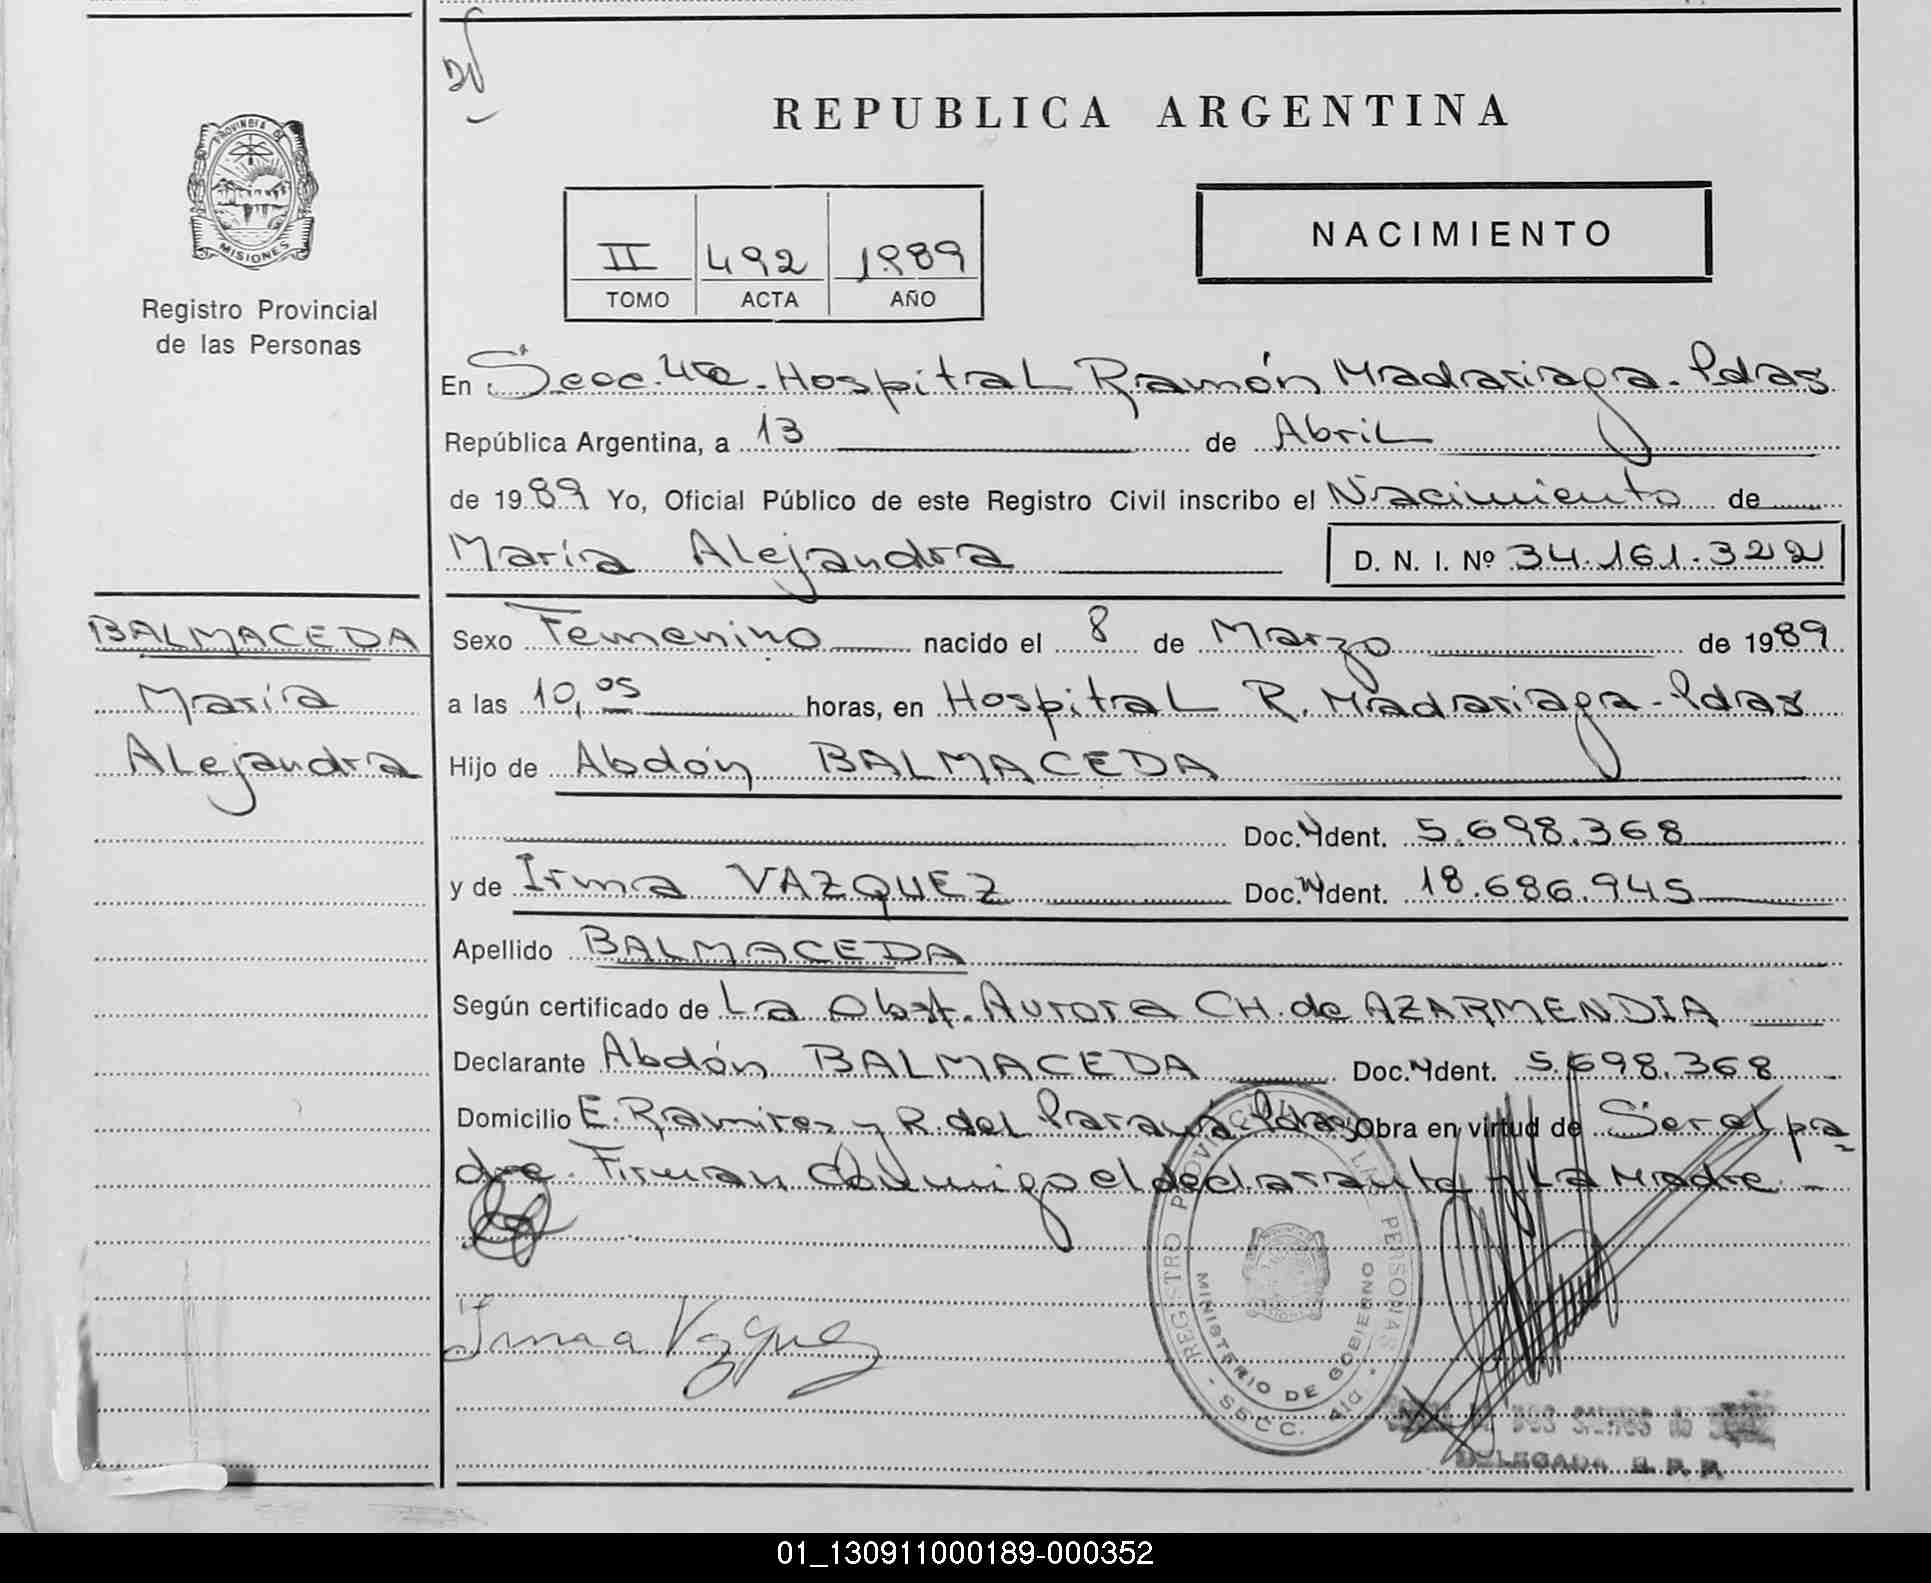 REPUBLICA ARGENTINA
PROVINCIA DE
MISIONES
Registro Provincial
de las Personas
II 492 1989
TOMO ACTA AÑO
NACIMIENTO
En Secc. 4ta. Hospital Ramón Madariaga - Pdas
República Argentina, a 13 de Abril
de 1989 Yo, Oficial Público de este Registro Civil inscribo el Nacimiento de
María Alejandra D. N. I. Nº 34.161.322
BALMACEDA
María
Alejandra
Sexo Femenino nacido el 8 de Marzo de 1989
a las 10,05 horas, en Hospital R. Madariaga - Pdas
Hijo de Abdón BALMACEDA
Doc. Ident. 5.698.368
y de Irma VAZQUEZ Doc. Ident. 18.686.945
Apellido BALMACEDA
Según certificado de La Obst. Aurora CH. de AZARMENDIA
Declarante Abdón BALMACEDA Doc. Ident. 5.698.368
Domicilio E. Ramirez y R. del Paraná Pdas Obra en virtud de Ser el pa-
dre. Firman conmigo el declarante y La Madre -
Irma Vazquez
REGISTRO PROVINCIAL PERSONAS
MINISTERIO DE GOBIERNO
SECC. 4ta
DELEGADA R. P. P.
01_130911000189-000352